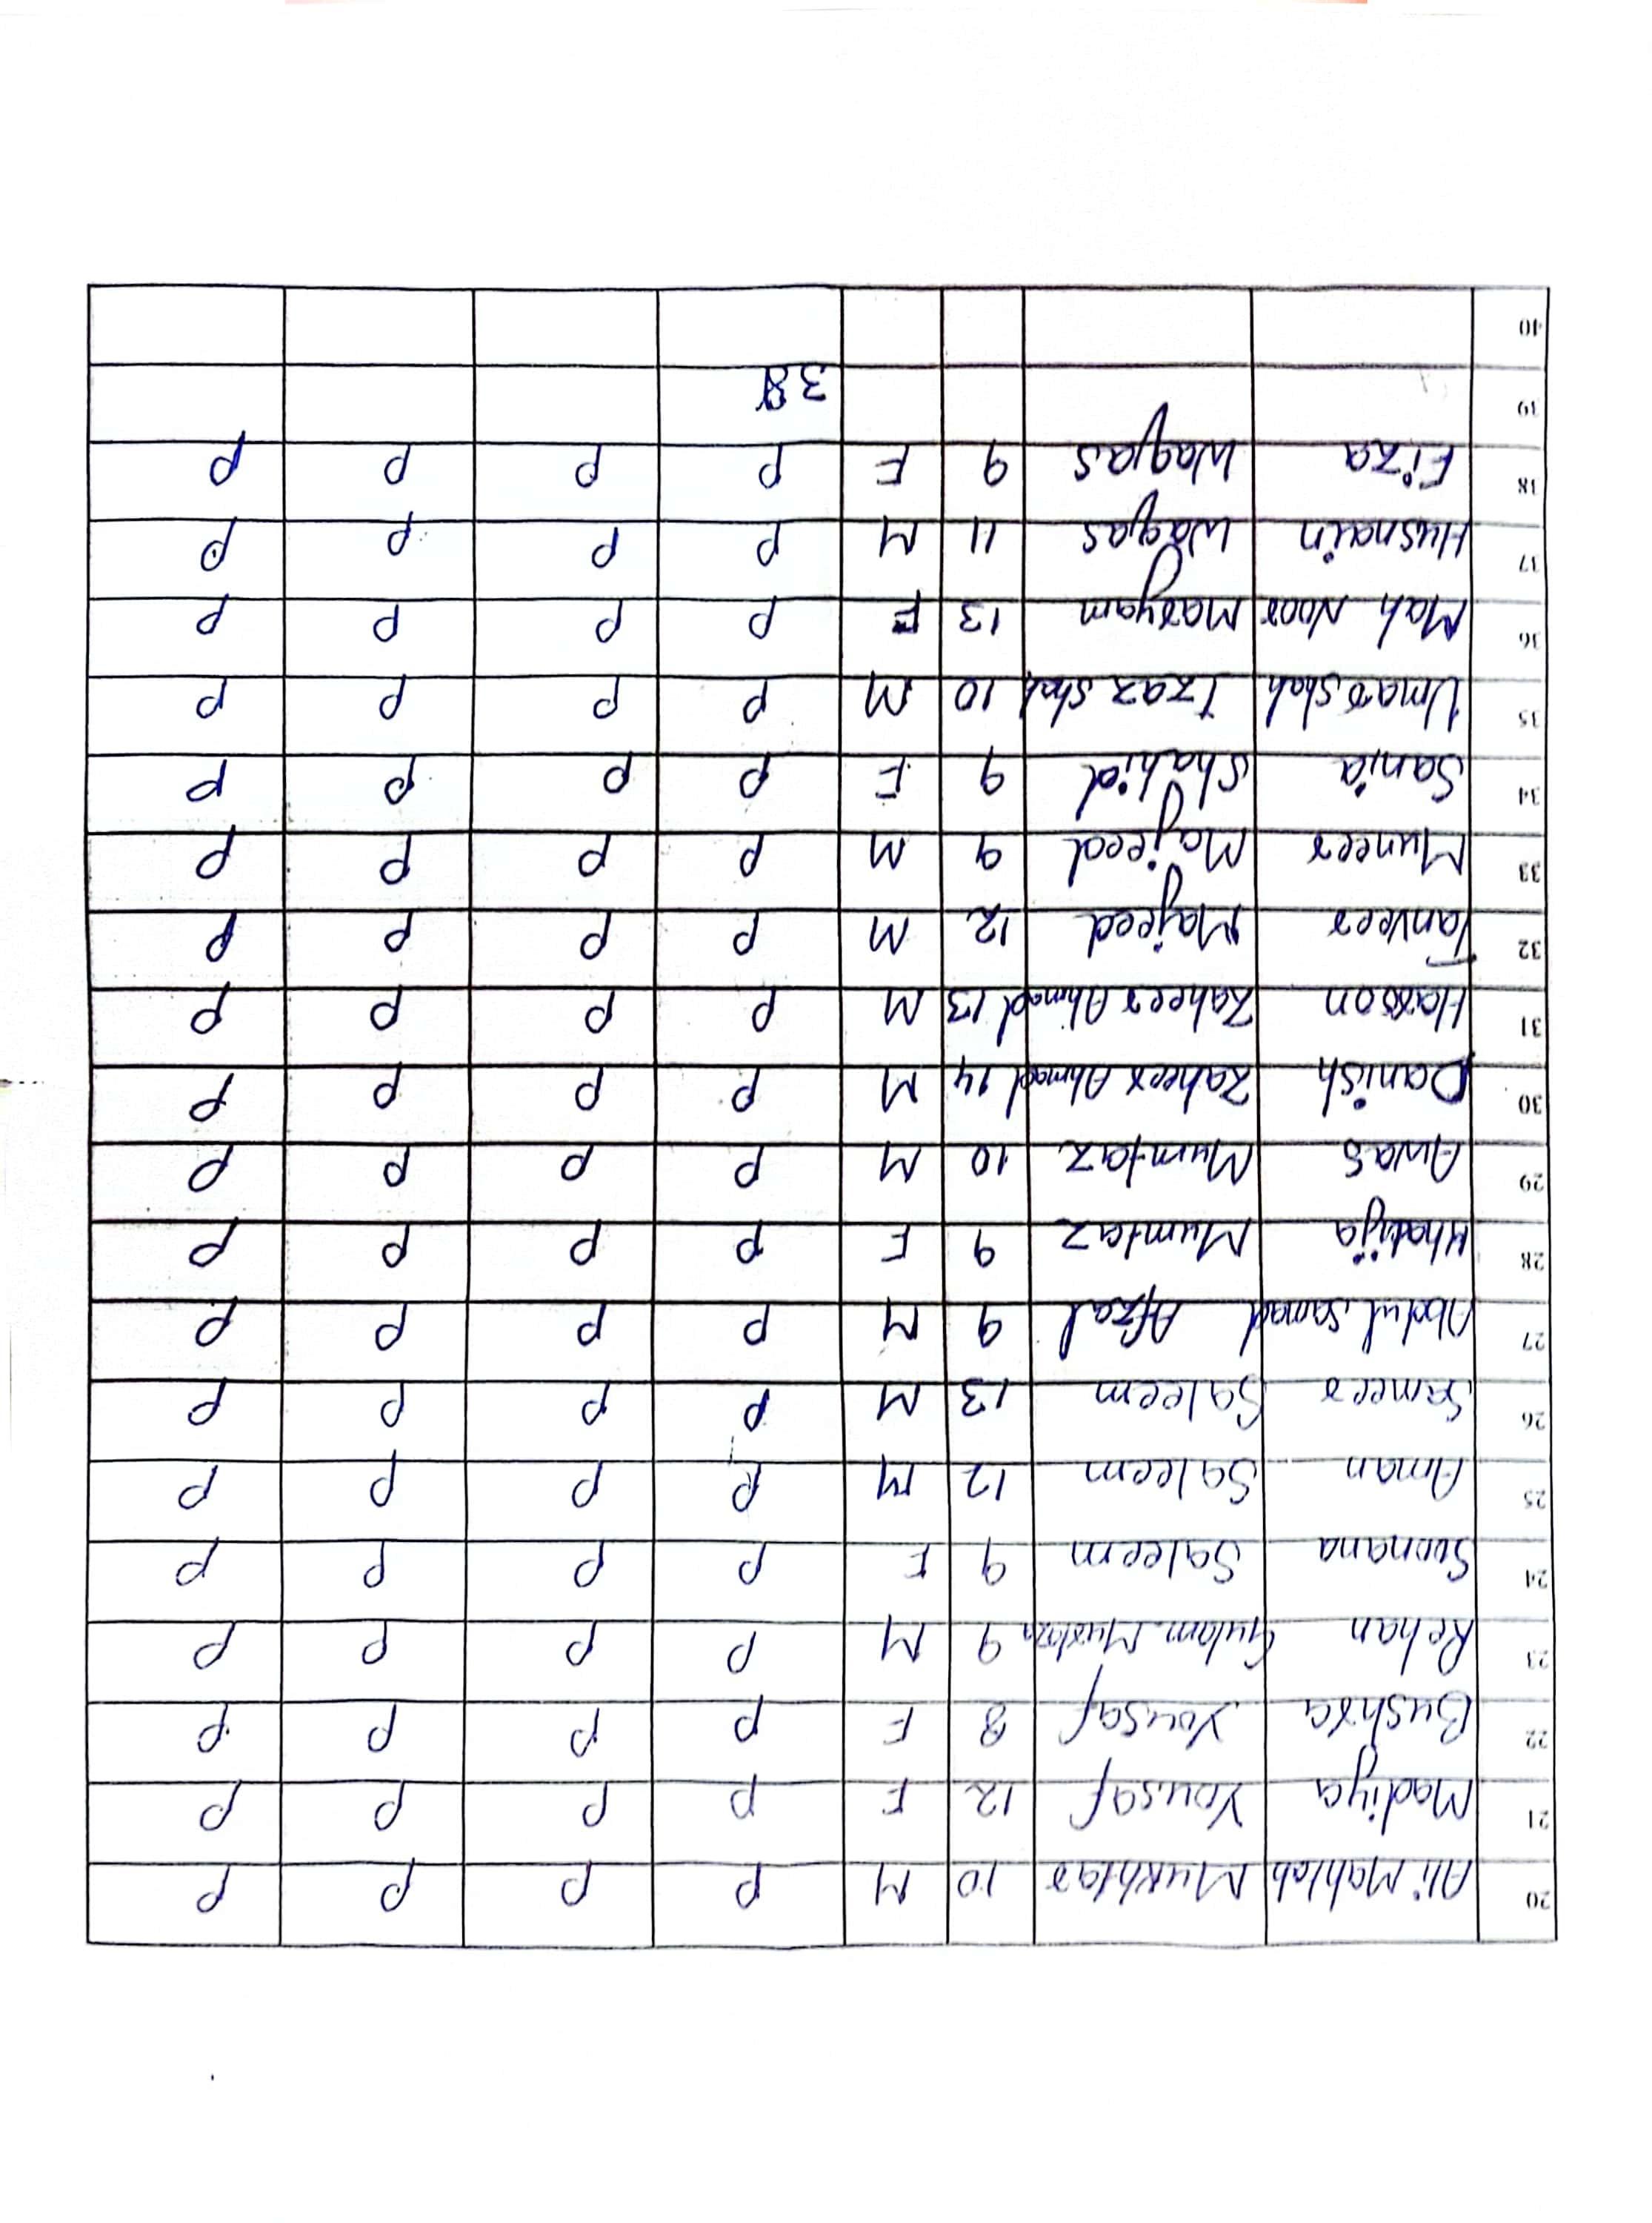 20 Ali Mahtab Mukhtar 10 M P P P P
21 Madiya Yousaf 12 F P P P P
22 Bushra Yousaf 8 F P P P P
23 Rehan Gulam Mustafa 9 M P P P P
24 Sumana Saleem 9 F P P P P
25 Aman Saleem 12 M P P P P
26 Sameer Saleem 13 M P P P P
27 Abdul Samad Afzal 9 M P P P P
28 Khatija Mumtaz 9 F P P P P
29 Awais Mumtaz 10 M P P P P
30 Danish Zaheer Ahmed 14 M P P P P
31 Haroon Zaheer Ahmed 13 M P P P P
32 Tanveer Majeed 12 M P P P P
33 Muneer Majeed 9 M P P P P
34 Sania Shahid 9 F P P P P
35 Umar Shah Izaz Shah 10 M P P P P
36 Mah Noor Maryam 13 F P P P P
37 Husnain Waqas 11 M P P P P
38 Fiza Waqas 9 F P P P P
39 38
40